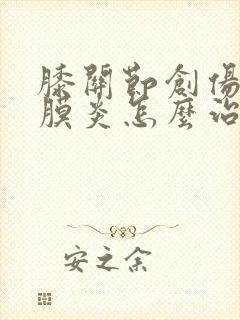 膝關節創傷
膜炎怎麼治
安之余